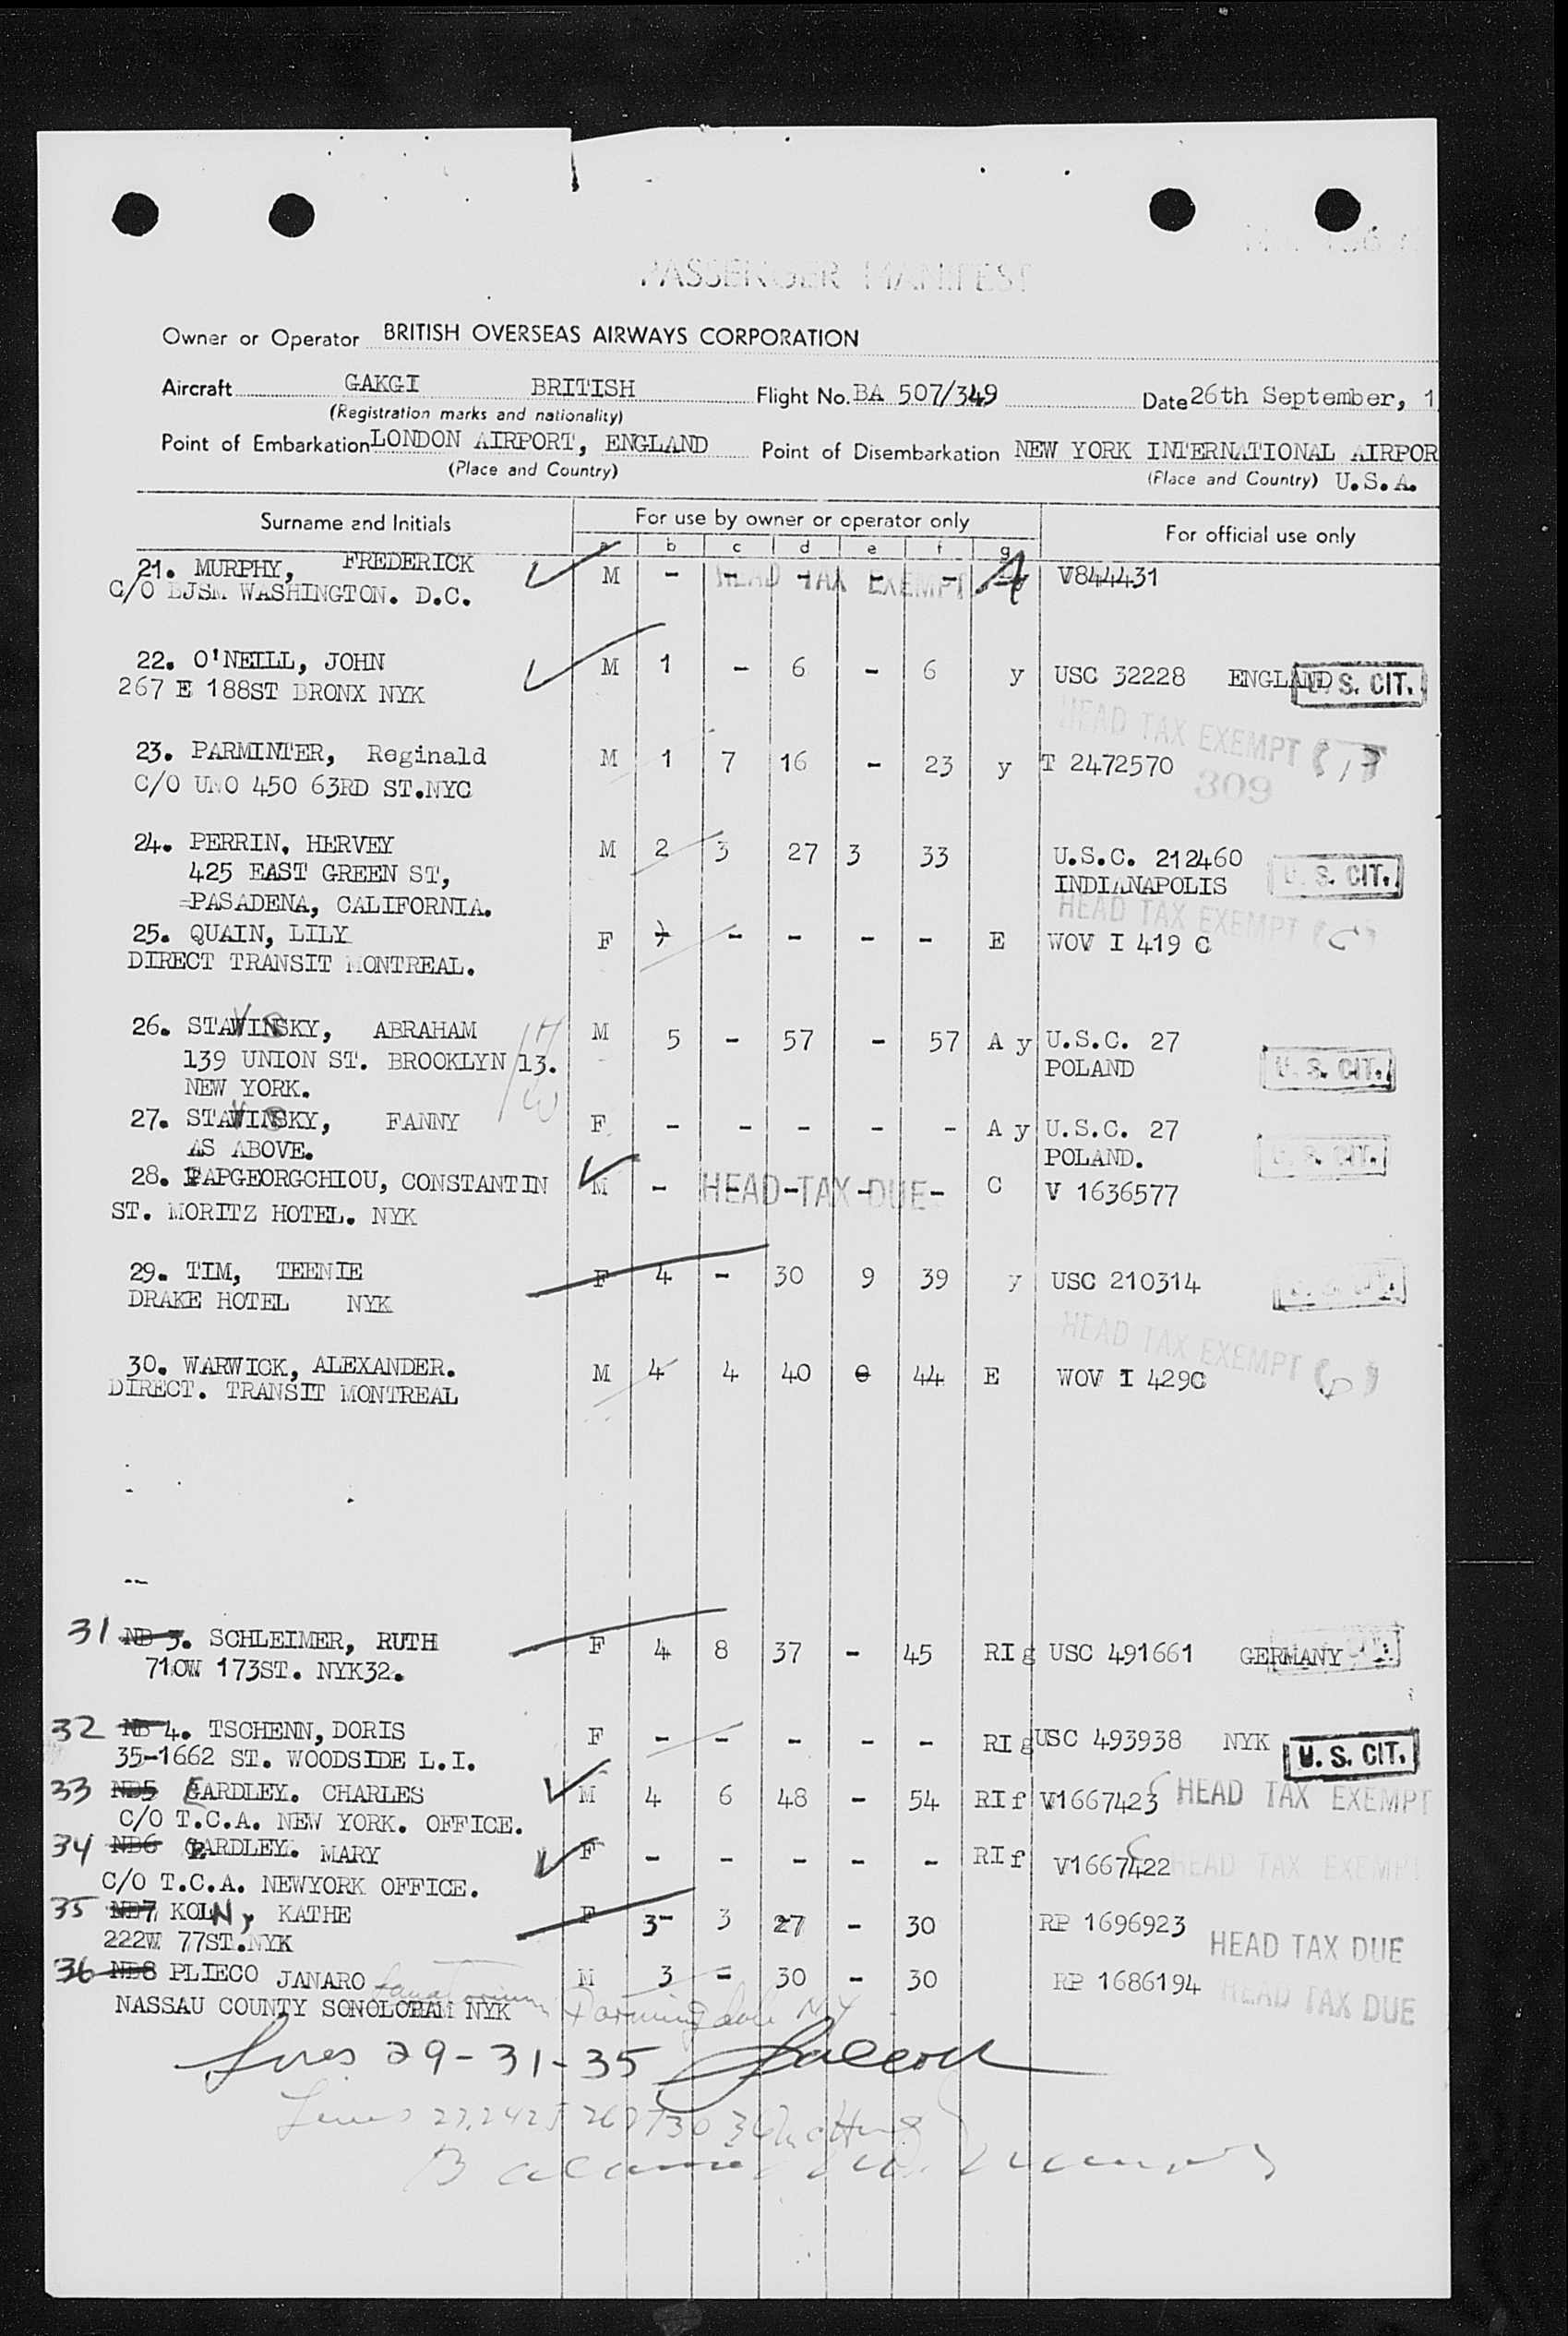 PASSENGER MANIFEST
Owner or Operator BRITISH OVERSEAS AIRWAYS CORPORATION
Aircraft GAKGI BRITISH Flight No. BA 507/349 Date 26th September, 1
(Registration marks and nationality)
Point of Embarkation LONDON AIRPORT, ENGLAND Point of Disembarkation NEW YORK INTERNATIONAL AIRPOR
(Place and Country) (Place and Country) U.S.A.
Surname and Initials For use by owner or operator only For official use only
a b c d e f g
21. MURPHY, FREDERICK M - - - - - V844431
HEAD TAX EXEMPT
C/O BJSM WASHINGTON. D.C.
22. O'NEILL, JOHN M 1 - 6 - 6 y USC 32228 ENGLAND U.S. CIT.
267 E 188ST BRONX NYK
HEAD TAX EXEMPT
23. PARMINTER, Reginald M 1 7 16 - 23 y T 2472570
309
C/O UNO 450 63RD ST.NYC
24. PERRIN, HERVEY M 2 3 27 3 33 U.S.C. 212460
425 EAST GREEN ST, INDIANAPOLIS U.S. CIT.
=PASADENA, CALIFORNIA. HEAD TAX EXEMPT
25. QUAIN, LILY F - - - - E WOV I 419 C
DIRECT TRANSIT MONTREAL.
26. STAWINSKY, ABRAHAM M 5 - 57 - 57 A y U.S.C. 27
139 UNION ST. BROOKLYN 13. POLAND U.S. CIT.
NEW YORK.
27. STAWINSKY, FANNY F - - - - - A y U.S.C. 27
AS ABOVE. POLAND. U.S. CIT.
28. PAPGEORGCHIOU, CONSTANTIN M - - - - - C V 1636577
HEAD TAX DUE
ST. MORITZ HOTEL. NYK
29. TIM, TEENIE F 4 - 30 9 39 y USC 210314 U.S. CIT.
DRAKE HOTEL NYK
HEAD TAX EXEMPT
30. WARWICK, ALEXANDER. M 4 4 40 0 44 E WOV I 429C
DIRECT. TRANSIT MONTREAL
31 NB 3. SCHLEIMER, RUTH F 4 8 37 - 45 RI g USC 491661 GERMANY
710W 173ST. NYK32.
32 NB 4. TSCHENN, DORIS F - - - - - RI g USC 493938 NYK U.S. CIT.
35-1662 ST. WOODSIDE L.I.
33 NB5 EARDLEY. CHARLES M 4 6 48 - 54 RI f V1667423 HEAD TAX EXEMPT
C/O T.C.A. NEW YORK. OFFICE.
34 NB6 EARDLEY. MARY F - - - - - RI f V1667422 HEAD TAX EXEMPT
C/O T.C.A. NEWYORK OFFICE.
35 NB7 KOLN, KATHE F 3- 3 27 - 30 RP 1696923
222W 77ST.NYK HEAD TAX DUE
36 NB8 PLIECO JANARO M 3 - 30 - 30 RP 1686194 HEAD TAX DUE
NASSAU COUNTY NYK Sanatorium Farmingdale N.Y
Lines 29-31-35